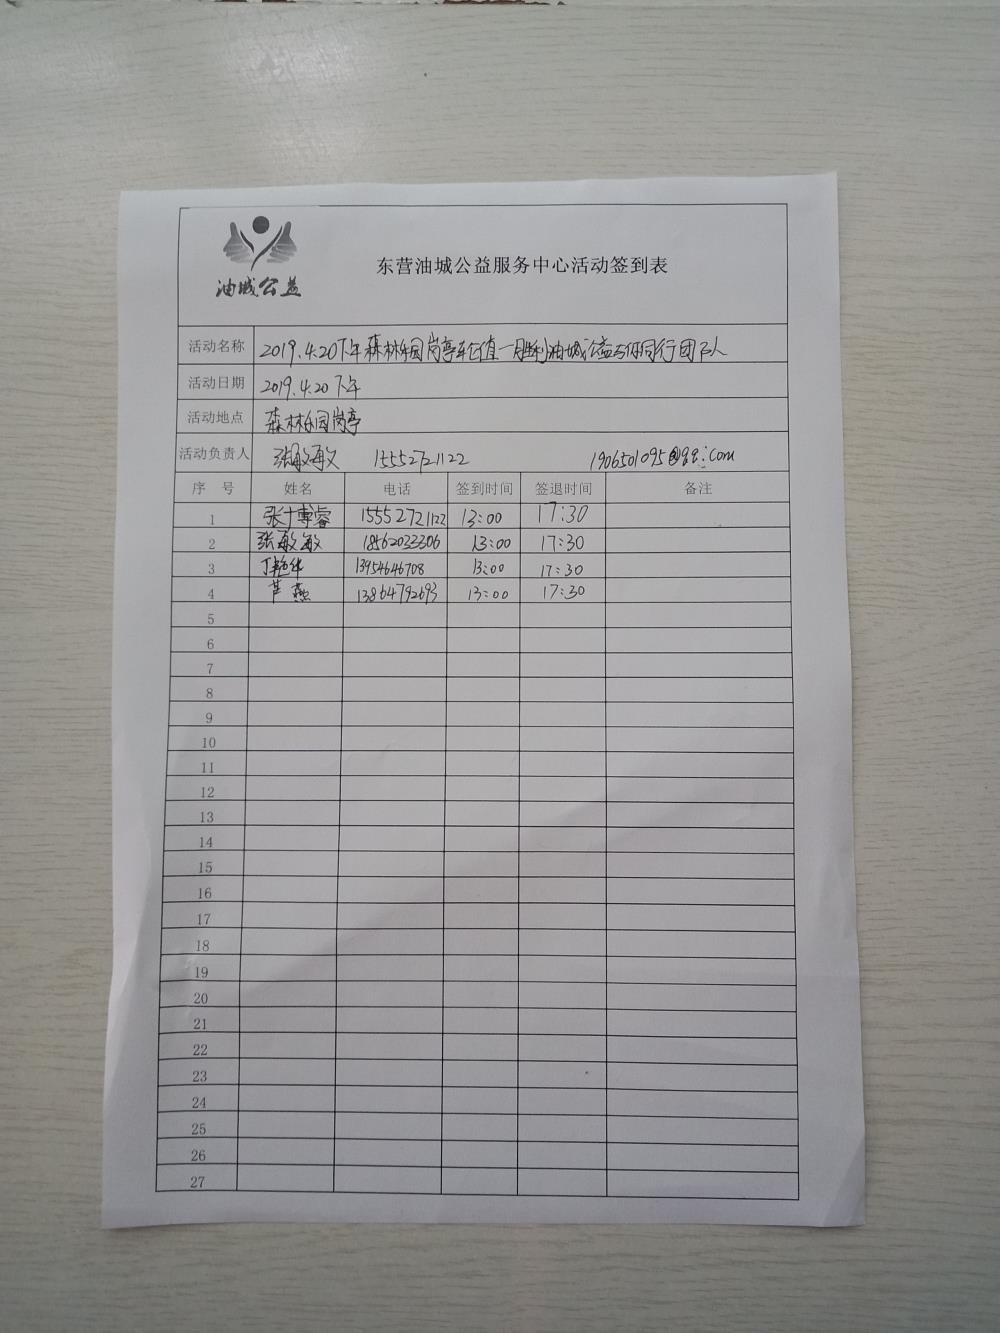 油城公益
东营油城公益服务中心活动签到表
活动名称 2019.4.20下午森林乐园岗亭 值一胜利油城公益与你同行团队
活动日期 2019.4.20下午
活动地点 森林乐园岗亭
活动负责人 张敏敏 15552721122 1906501095@qq.com
序号 姓名 电话 签到时间 签退时间 备注
1 张博睿 15552721122 13:00 17:30
2 张敏敏 18562033306 13:00 17:30
3 丁艳华 13954646708 13:00 17:30
4 燕 13864792693 13:00 17:30
5
6
7
8
9
10
11
12
13
14
15
16
17
18
19
20
21
22
23
24
25
26
27